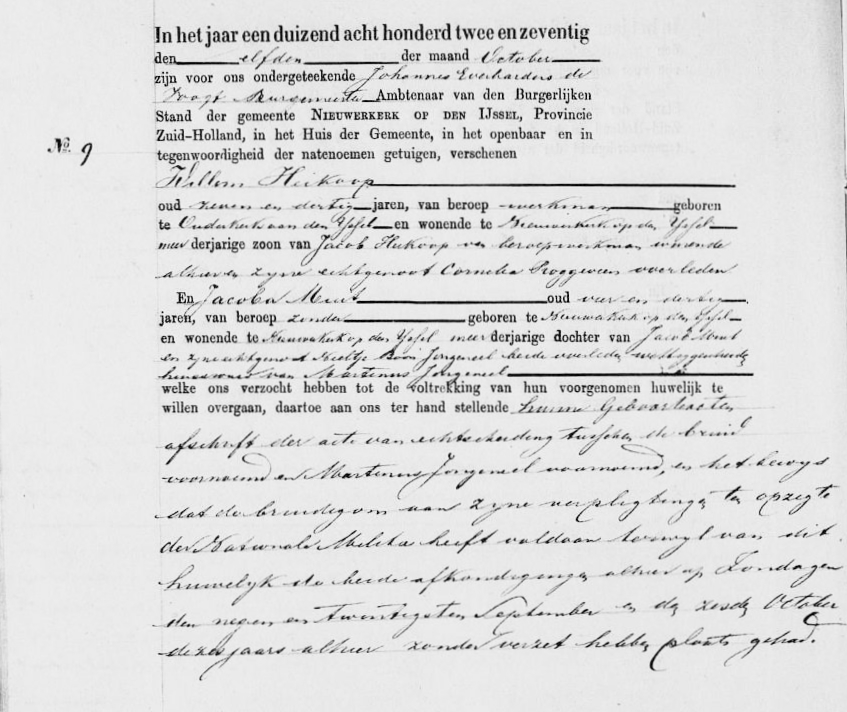 In het jaar een duizend acht honderd twee en zeventig
den elfden der maand October
zijn voor ons ondergeteekende Johannes Everhardus de
Burgemeester Ambtenaar van den Burgerlijken
Stand der gemeente NIEUWERKERK OP DEN IJSSEL, Provincie
Zuid-Holland, in het Huis der Gemeente, in het openbaar en in
No. 9
tegenwoordigheid der natenoemen getuigen, verschenen
Willem Heikoop
oud zeven en dertig jaren, van beroep werkman geboren
te Ouderkerk aan den Yssel en wonende te Nieuwerkerk op den Yssel
meerderjarige zoon van Jacob Heikoop van beroep werkman wonende
alhier en zyne echtgenoot Cornelia overleden
En Jacoba Muit oud vier en dertig
jaren, van beroep zonder geboren te Nieuwerkerk op den Yssel
en wonende te Nieuwerkerk op den Yssel meerderjarige dochter van Jacob
en zyne echtgenoot Neeltje beide overleden
van Martinus Jongeneel
welke ons verzocht hebben tot de voltrekking van hun voorgenomen huwelijk te
willen overgaan, daartoe aan ons ter hand stellende hunne Geboorteacten
afschrift der acte van echtscheiding tusschen de bruid
voornoemd en Martinus Jongeneel voornoemd, en het bewys
dat de bruidegom aan zyne verpligtingen ten opzigte
der Nationale Militie heeft voldaan terwyl van dit
huwelyk de beide afkondigingen alhier op Zondagen
den negen en twintigsten September en den zesden October
dezes jaars alhier zonder verzet hebben plaats gehad.